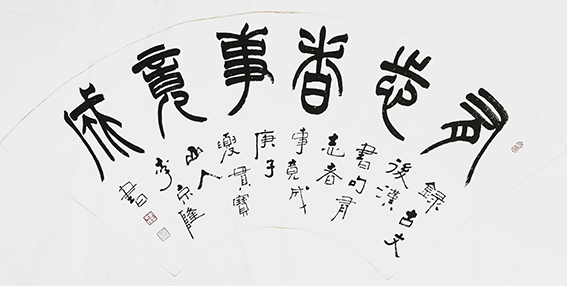 有志者事竟成
錄古文
後漢
書句有
志者
事竟成
庚子
寶
山人
書